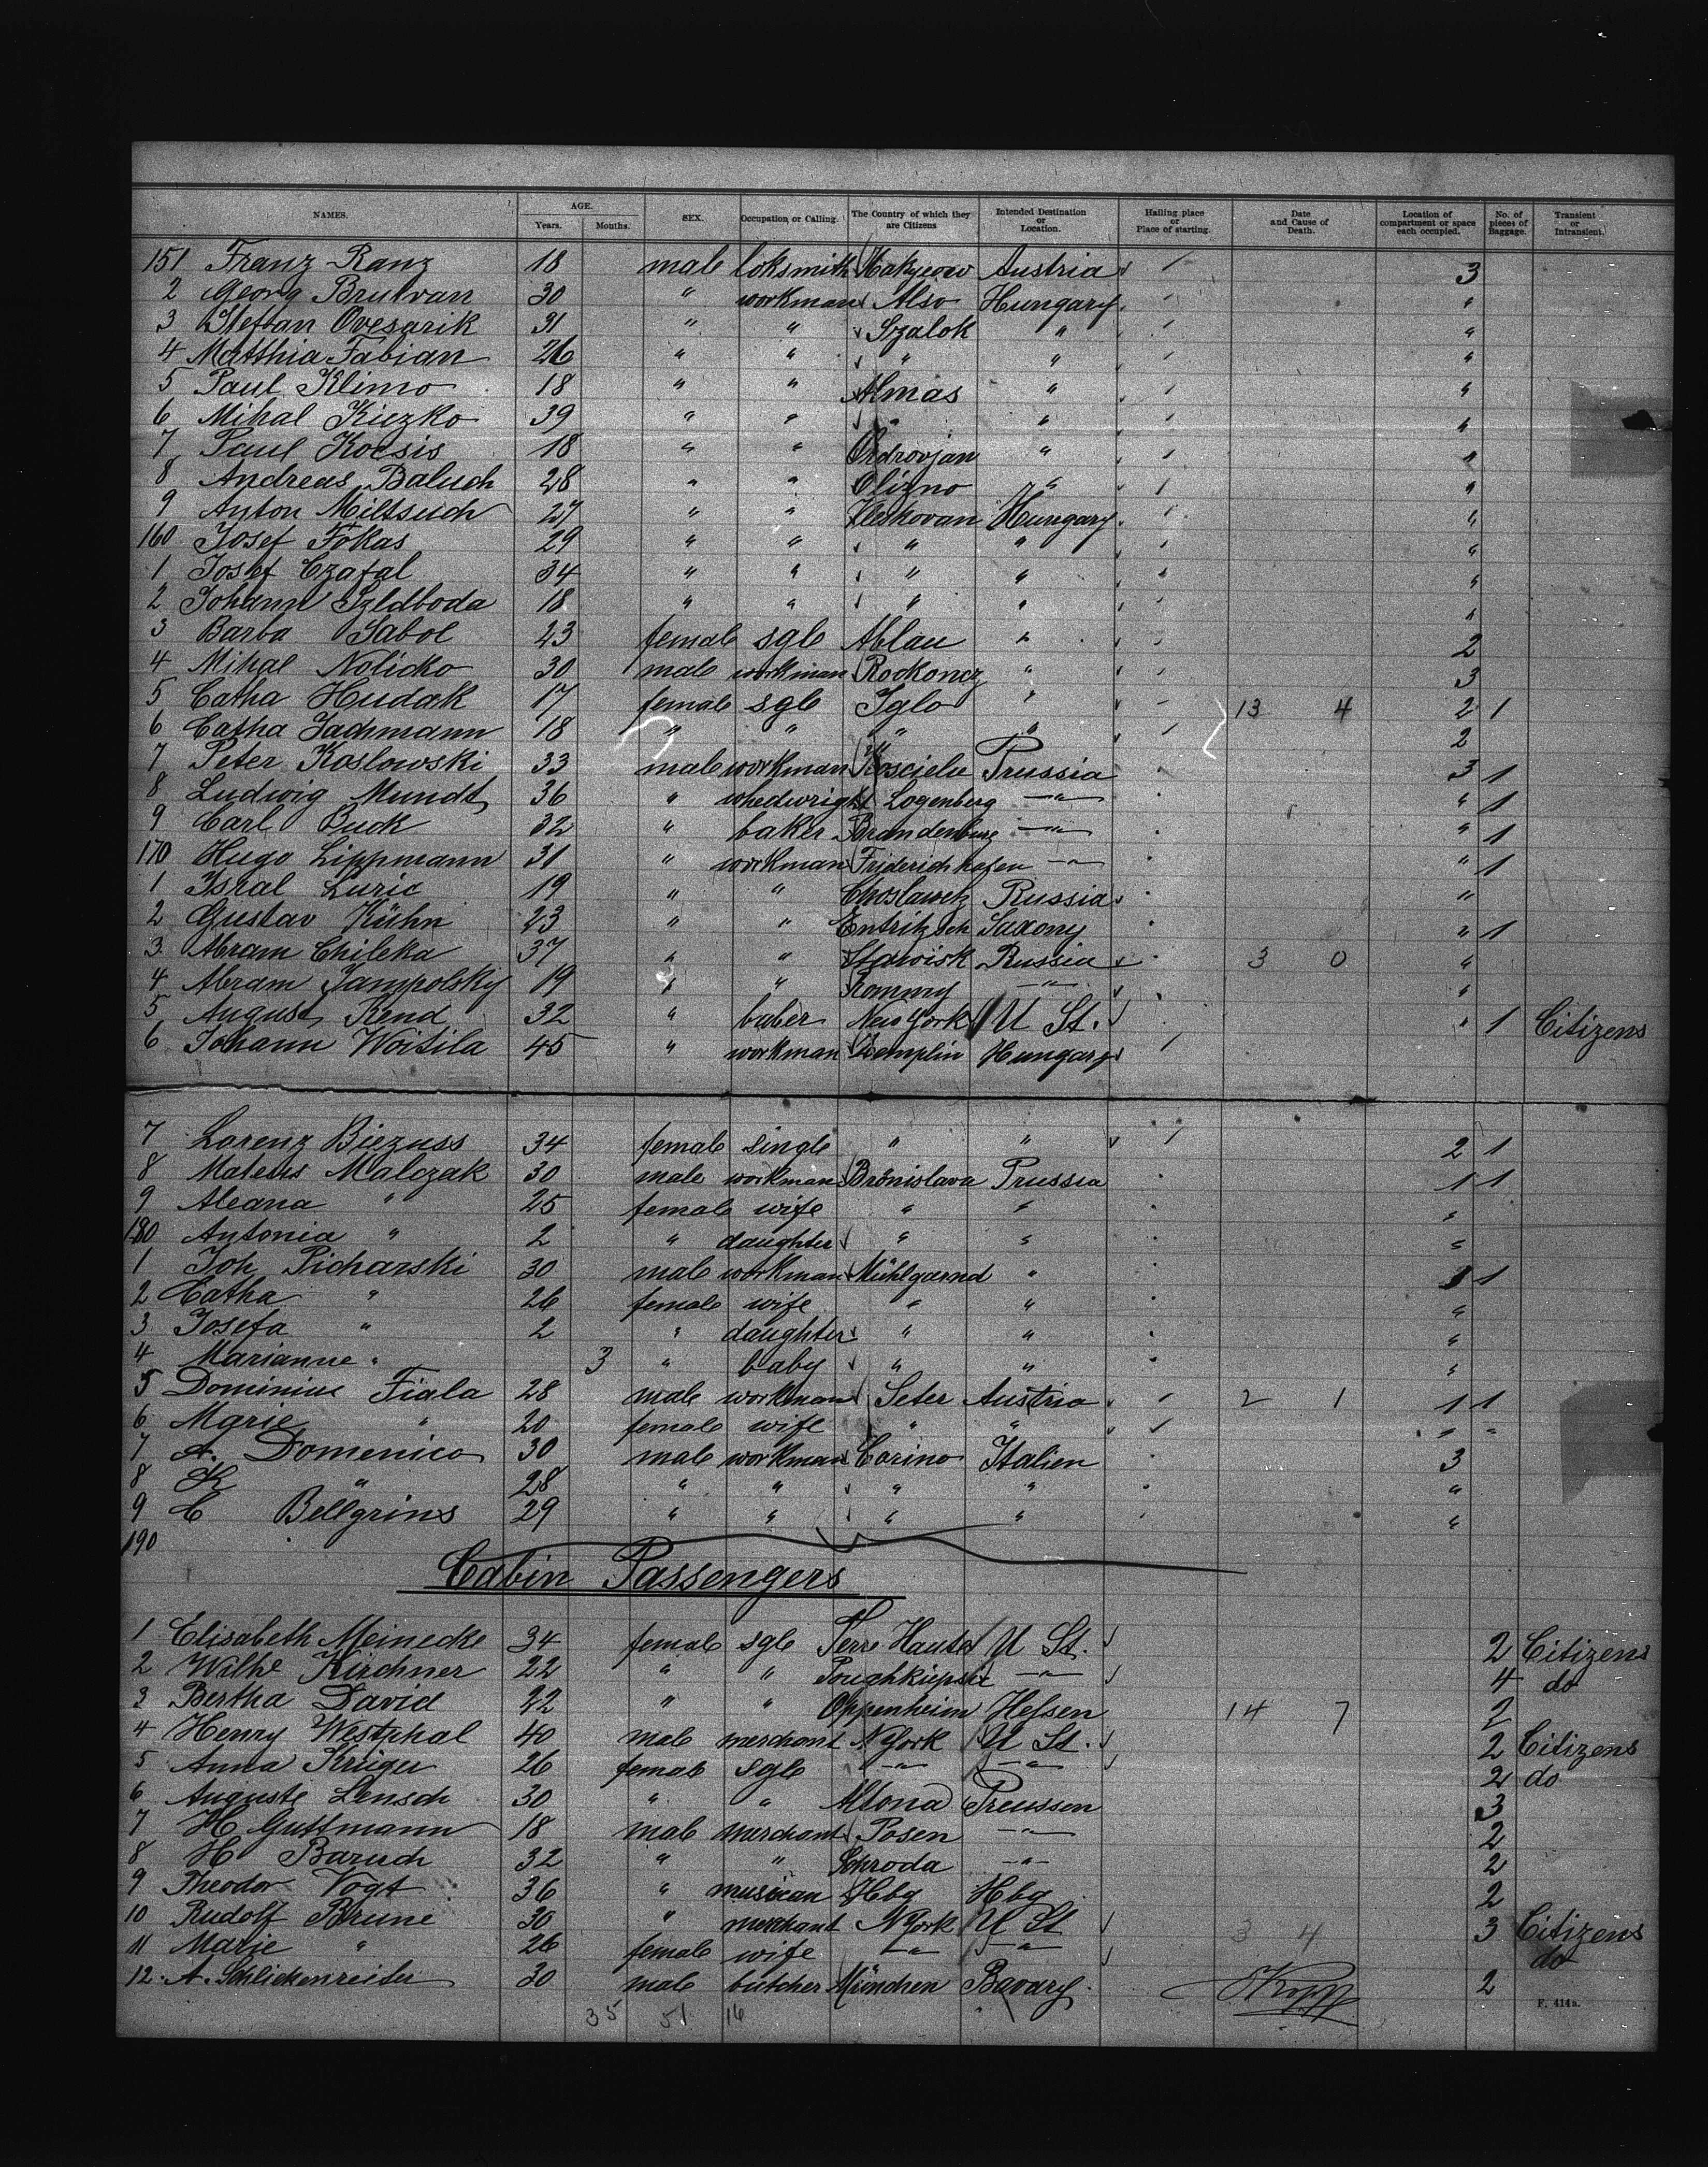 NAMES. AGE. Years. Months. SEX. Occupation, or Calling. The Country of which they are Citizens Intended Destination or Location. Hailing place or Place of starting. Date and Cause of Death. Location of compartment or space each occupied. No. of pieces of Baggage. Transient or Intransient.
151 Franz Ranz 18 male loksmith Austria 3
2 Georg Brutvan 30 " workman Also Hungary "
3 Steffan Ovesarik 31 " " Szalok " "
4 Matthia Fabian 26 " " " " "
5 Paul Klimo 18 " " Almas " "
6 Mihal Kiczko 39 " " " " "
7 Paul Kocsis 18 " " " "
8 Andreas Baluch 28 " " Olizno " "
9 Anton Miltsuch 27 " " Hungary "
160 Josef Fokas 29 " " " " "
1 Josef Czafal 34 " " " " "
2 Johann 18 " " " " "
3 Barba Sabol 23 female sgle Ablau " 2
4 Mihal Nolicko 30 male workman Rockoncz " 3
5 Catha Hudak 17 female sgle Iglo " 13 4 2 1
6 Catha Jachmann 18 " " " " 2
7 Peter Koslowski 33 male workman Koscielu Prussia 3 1
8 Ludwig Mundt 36 " Logenberg —"— " 1
9 Carl Buck 32 " baker Brandenburg —"— " 1
170 Hugo Lippmann 31 " workman Friderichhafen —"— " 1
1 Isral Luric 19 " " Russia "
2 Gustav Kühn 23 " " Entritzsch Saxony " 1
3 Abram Chileka 37 " " Stawisk Russia 3 0 "
4 Abram Jampolsky 19 " " Romny —"— "
5 August Rend 32 " baber New York U St. " 1 Citizens
6 Johann Woitila 45 " workman Zemplin Hungary
7 Lorenz Biezuss 34 female single " " 2 1
8 Mateus Malczak 30 male workman Bronislava Prussia 1 1
9 Aleana " 25 female wife " " "
180 Antonia " 2 " daughter " " "
1 Joh Picharski 30 male workman Mühlgarnd " 1
2 Catha " 26 female wife " " "
3 Josefa " 2 " daughter " " "
4 Marianne " 3 " baby " " "
5 Dominius Fiala 28 male workman Seter Austria 2 1 1 1
6 Marie " 20 female wife " " " "
7 A. Domenico 30 male workman Corino Italien 3
8 K " 28 " " " " "
9 C Bellgrins 29 " " " " "
190
Cabin Passengers
1 Elisabeth Meinecke 34 female sgle Terre Haute U St. 2 Citizens
2 Wilhe Kirchner 22 " " Poughkiepsie —"— 4 do
3 Bertha David 22 " " Oppenheim Hessen 14 7 2
4 Henry Westphal 40 male merchant N York U St. 2 Citizens
5 Anna Krüger 26 female sgle —"— —"— 2 do
6 Auguste Lensch 30 " " Altona Preussen 3
7 H Guttmann 18 male merchant Posen —"— 2
8 H Baruch 32 " " Schroda —"— 2
9 Theodor Vogt 36 " musican Hbg Hbg 2
10 Rudolf Brune 30 " merchant N York U St 3 4 3 Citizens
11 Marie " 26 female wife —"— —"— do
12. A. Schlickenreiter 30 male butcher München Bavary 2
35 51 16
F. 414a.